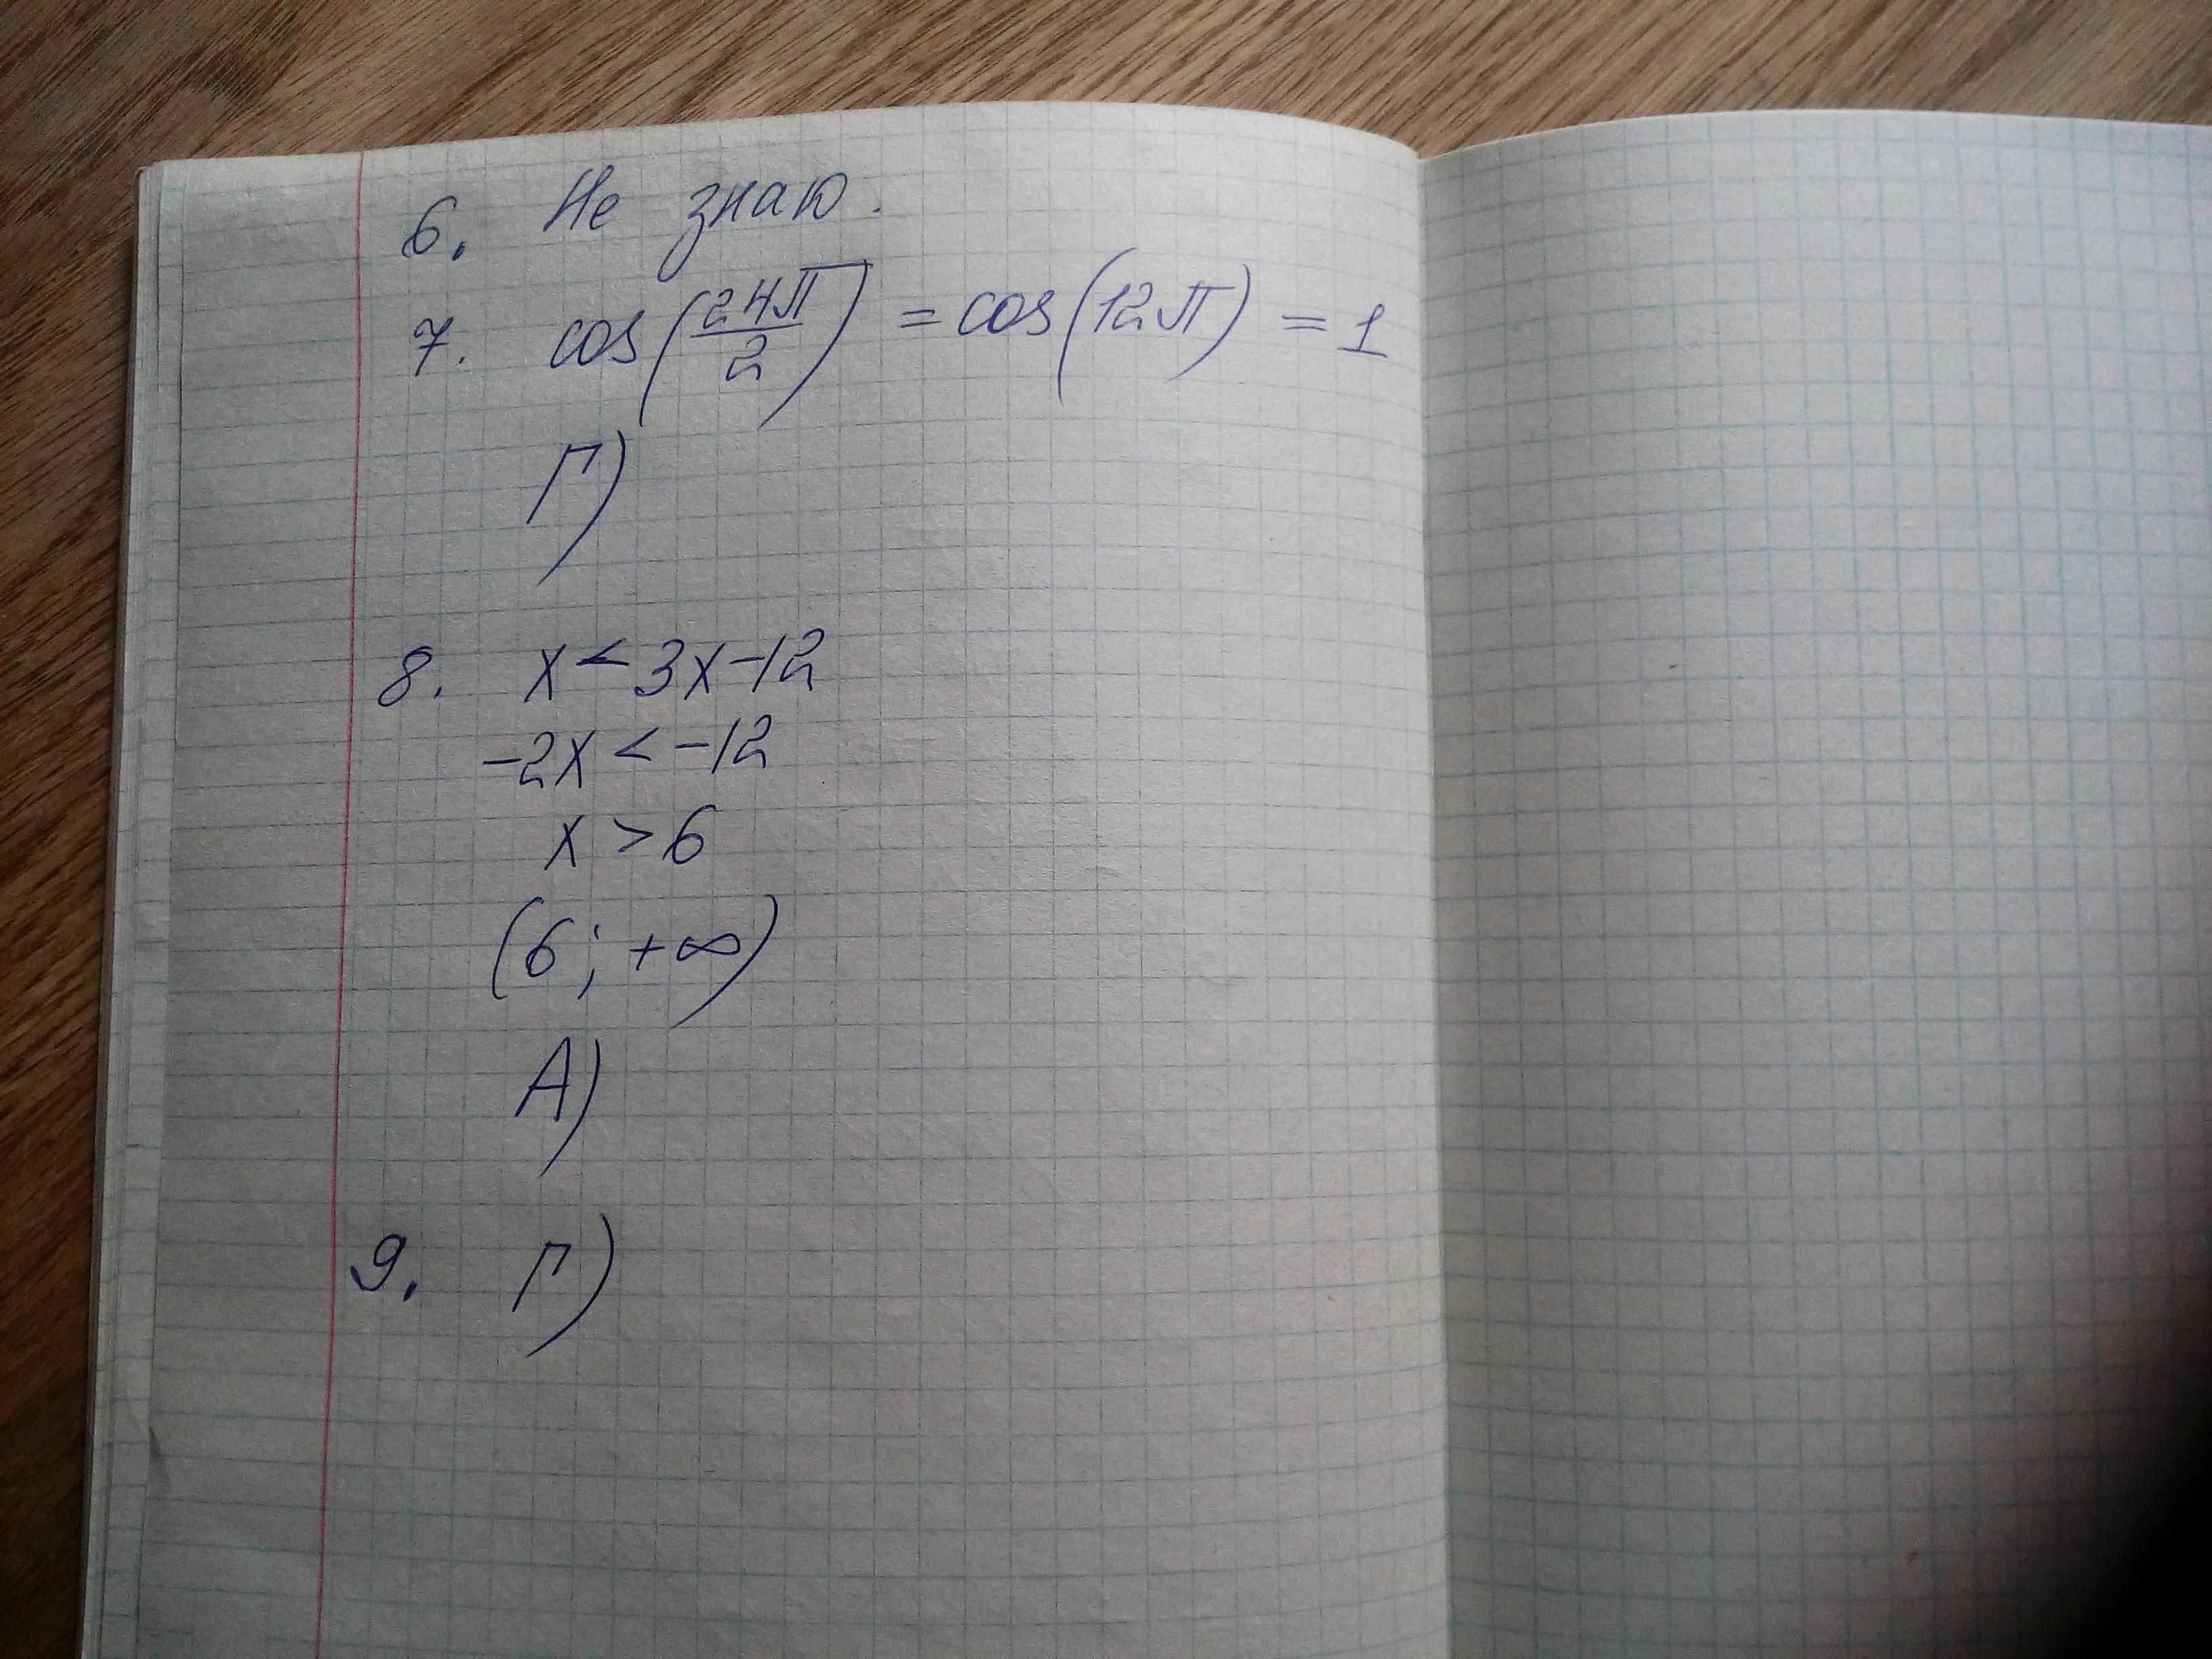 6. Не знаю.
7. cos(24π/2) = cos(12π) = 1
Г)
8. x < 3x-12
-2x < -12
x > 6
(6; +∞)
А)
9. Г)